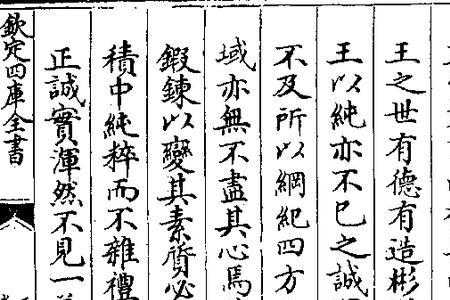 王之世有德有造彬
王以純亦不已之誠
不及所以綱紀四方
域亦無不盡其心焉
鍜鍊以變其素質必
積中純粹而不雜禮
正誠實渾然不見一
欽定四庫全書